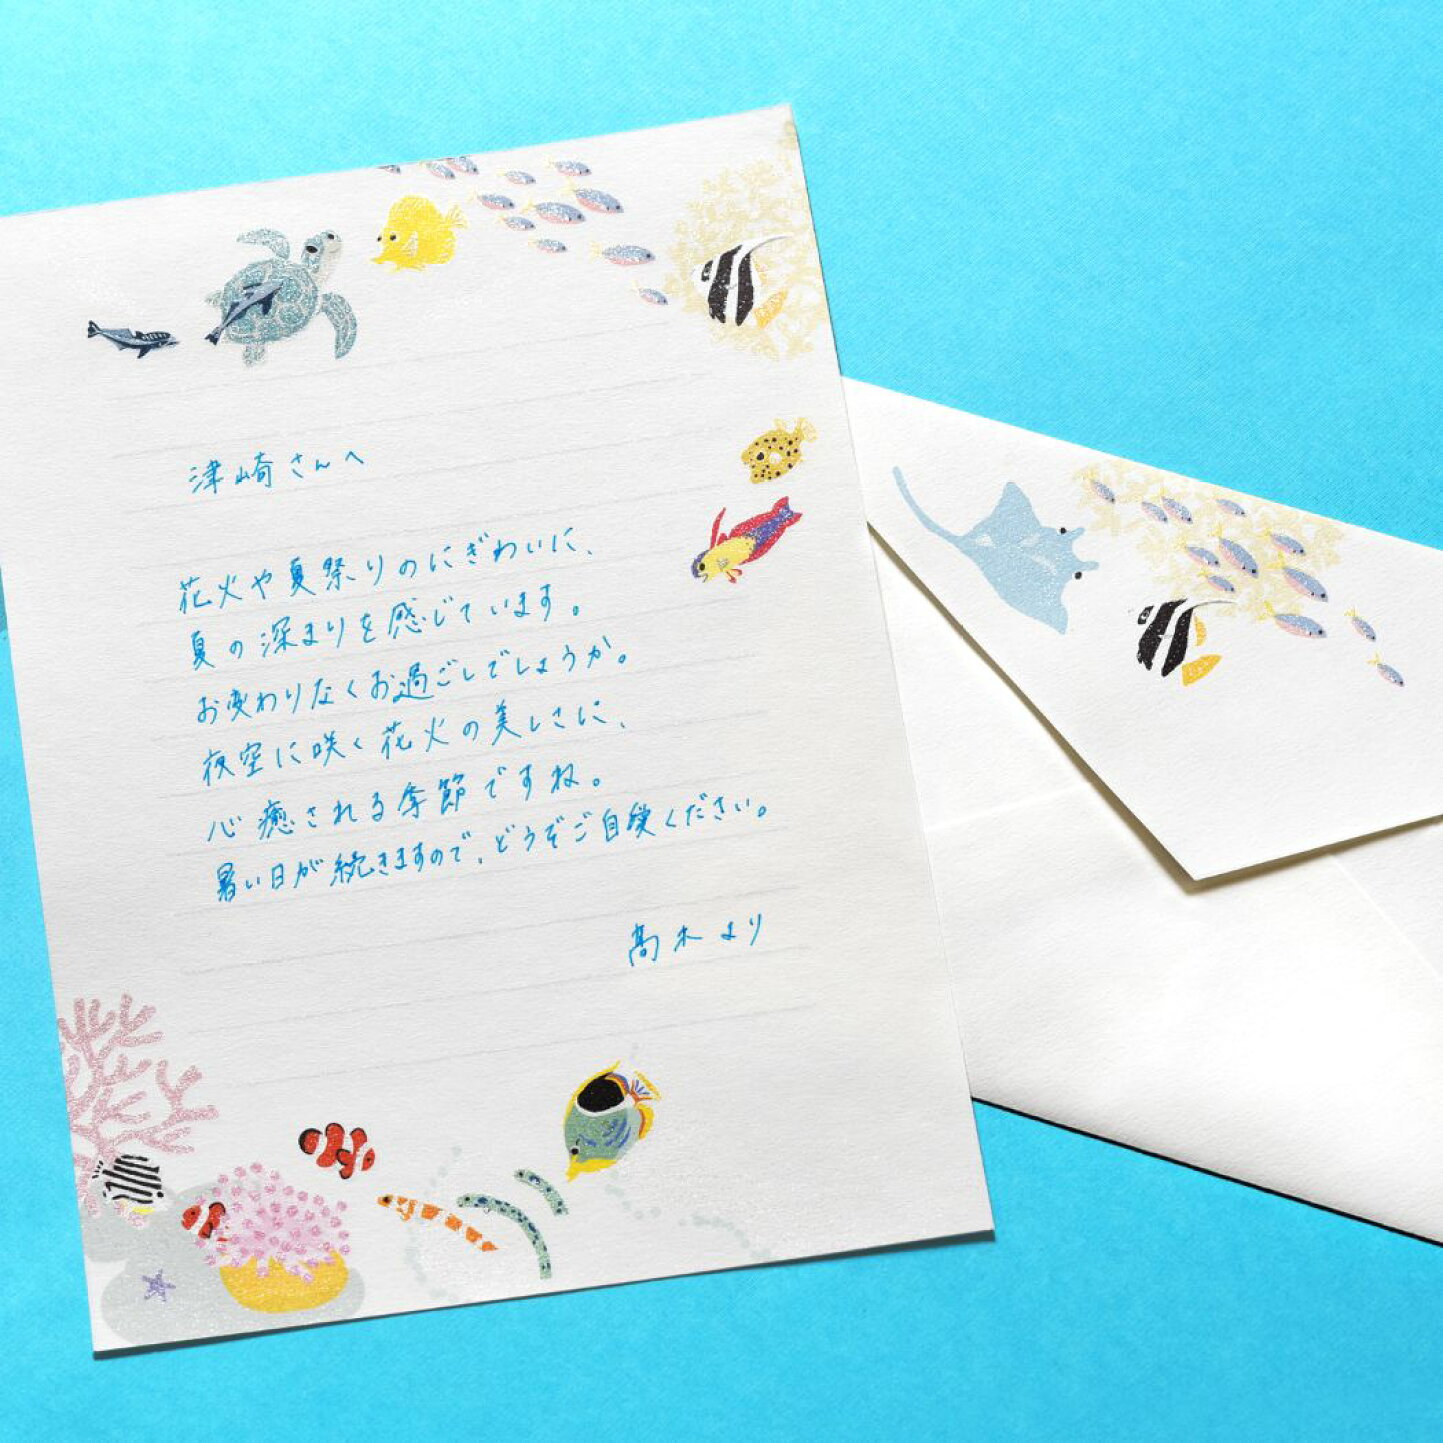 津崎さんへ
花火や夏祭りのにぎわいに、
夏の深まりを感じています。
お変わりなくお過ごしでしょうか。
夜空に咲く花火の美しさに、
心癒される季節ですね。
暑い日が続きますので、どうぞご自愛ください。
髙木より